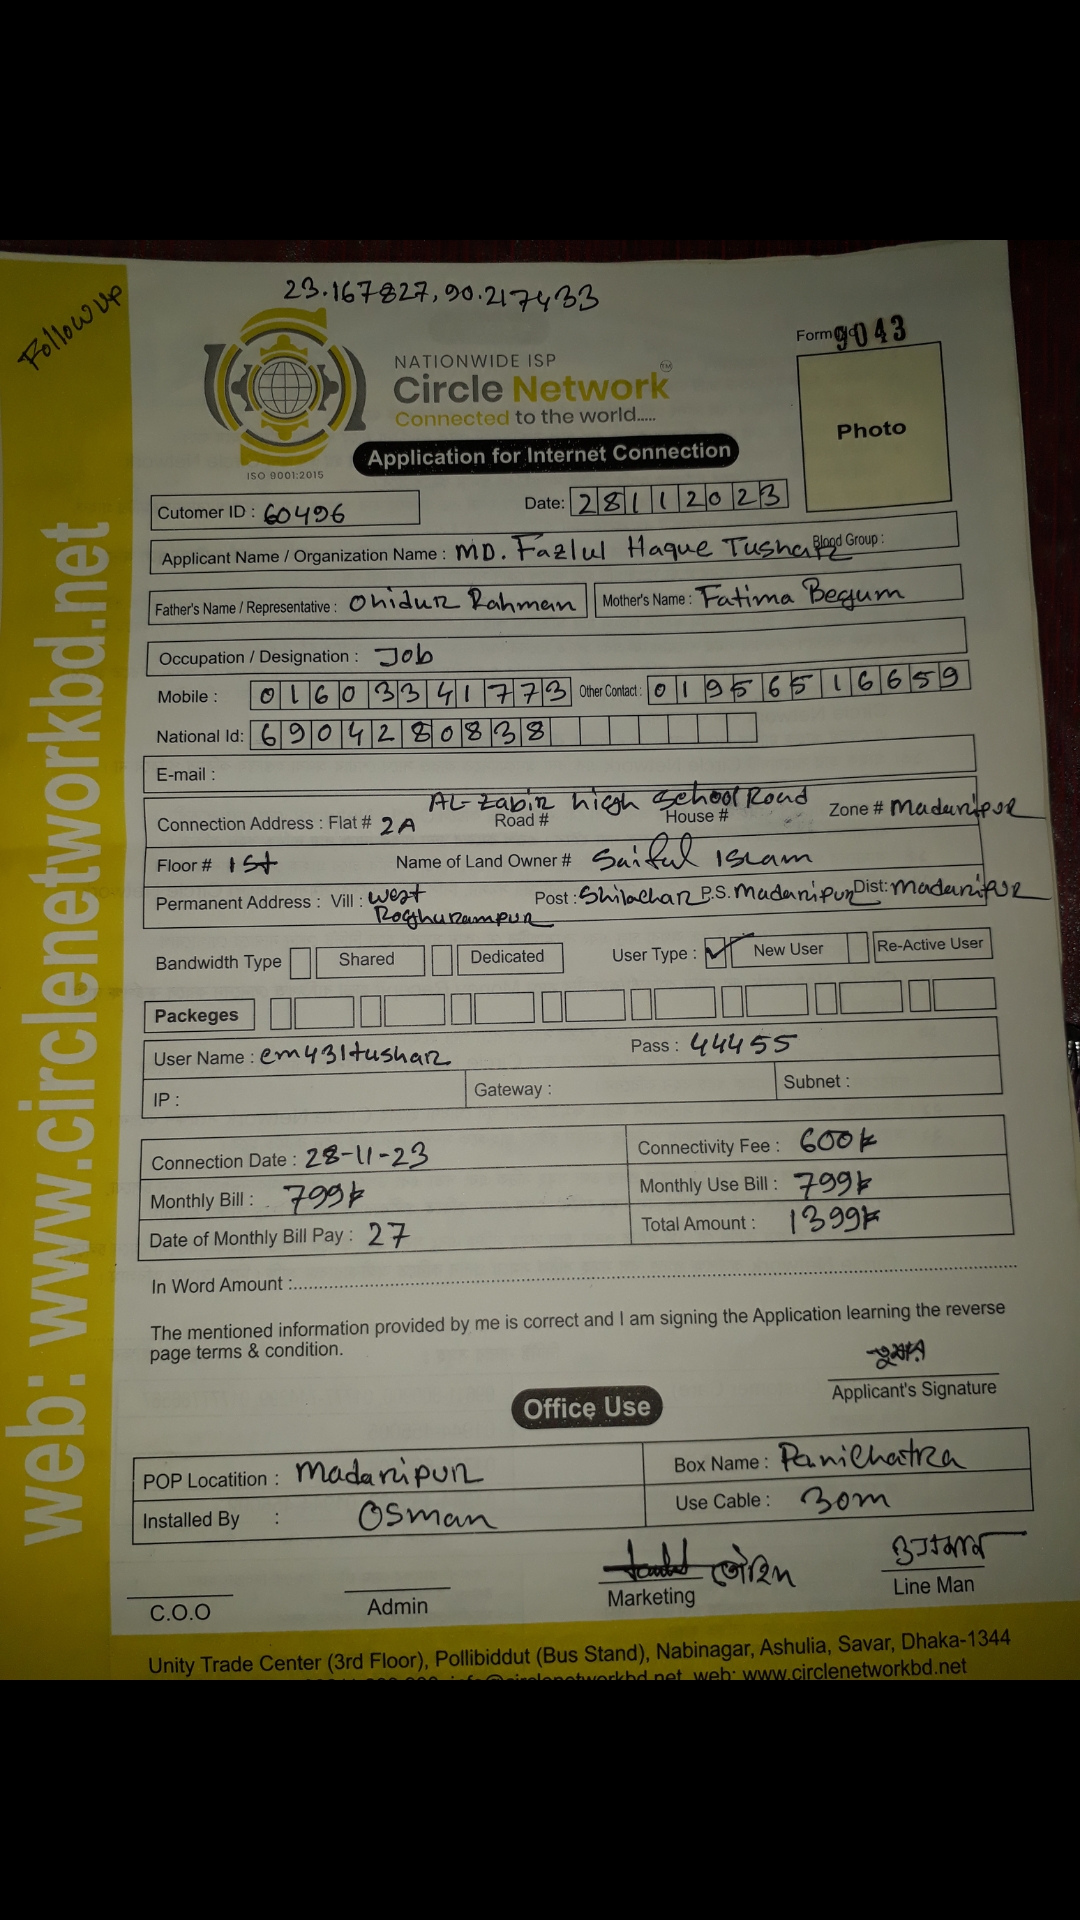 Follow up
23.167827, 90.217433
Form No 9043
NATIONWIDE ISP
Circle Network TM
Connected to the world.....
ISO 9001:2015
Photo
Application for Internet Connection
Cutomer ID : 60496
Date: 28112023
Applicant Name / Organization Name : MD. Fazlul Haque Tushar Blood Group :
Father's Name / Representative : Ohidur Rahman Mother's Name : Fatima Begum
Occupation / Designation : Job
Mobile : 01603341773 Other Contact : 01956516659
National Id: 6904280838
E-mail :
AL-Zabir high School Road
Connection Address : Flat # 2A Road # House # Zone # Madaripur
Floor # 1st Name of Land Owner # Saiful Islam
Permanent Address : Vill : west Roghurampur Post : Shilachar P.S. Madaripur Dist: Madaripur
Bandwidth Type Shared Dedicated User Type : ✓ New User Re-Active User
Packeges
User Name : em431tushar Pass : 44455
IP : Gateway : Subnet :
Connection Date : 28-11-23 Connectivity Fee : 600৳
Monthly Bill : 799৳ Monthly Use Bill : 799৳
Date of Monthly Bill Pay : 27 Total Amount : 1399৳
In Word Amount :
The mentioned information provided by me is correct and I am signing the Application learning the reverse
page terms & condition.
তুষার
Applicant's Signature
Office Use
POP Locatition : Madaripur Box Name : Panichatra
Installed By : Osman Use Cable : 30m
তৌহিদ ওসমান
C.O.O Admin Marketing Line Man
Unity Trade Center (3rd Floor), Pollibiddut (Bus Stand), Nabinagar, Ashulia, Savar, Dhaka-1344
info@circlenetworkbd.net, web: www.circlenetworkbd.net
web: www.circlenetworkbd.net